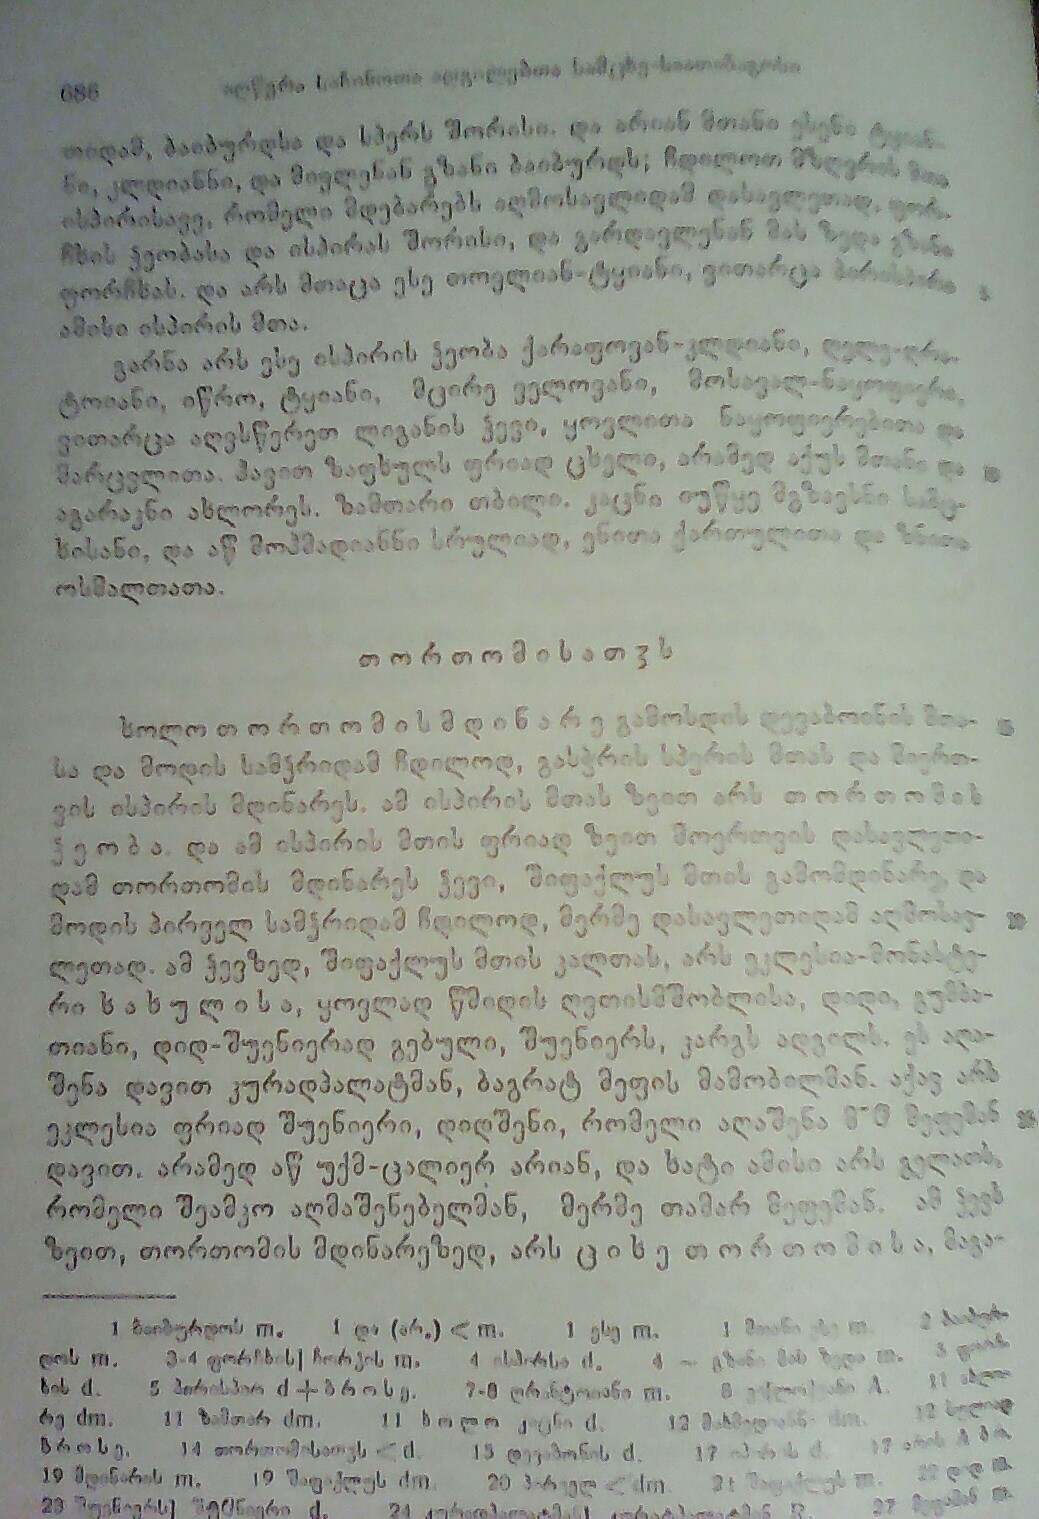 686 აღწერა საჩინოთა ადგილებთა სამცხე-საათაბაგოსი
თიდამ, ბაიბურდსა და სპერს შორისი. და არიან მთანი ესენი ტყიან-
ნი, კლდიანნი, და მივლენან გზანი ბაიბურდს; ჩდილოთ მზღვრის მთა
ისპირისავე, რომელი მდებარებს აღმოსავლიდამ დასავლეთად, ფორ-
ჩხის ჭეობასა და ისპირას შორისი, და გარდავლენან მას ზედა გზანი
ფორჩხას. და არს მთაცა ესე თოვლიან-ტყიანი, ვითარცა პირისპირი 5
ამისი ისპირის მთა.
გარნა არს ესე ისპირის ჭეობა ქარაფოვან-კლდიანი, ღელე-ღრა-
ტოიანი, იწრო, ტყიანი, მცირე ველოვანი, მოსავალ-ნაყოფიერი,
ვითარცა აღვსწერეთ ლიგანის ჭევი, ყოვლითა ნაყოფიერებითა და
მარცვლითა. ჰავით ზაფხულს ფრიად ცხელი, არამედ აქუს მთანი და 10
აგარაკნი ახლორეს. ზამთარი თბილი. კაცნი თუწყე მგზავსნი სამც-
ხისანი, და აწ მოჰმადიანნი სრულიად, ენითა ქართულითა და ზნითა
ოსმალთათა.
თორთომისათჳს
ხოლო თორთომის მდინარე გამოსდის დევაბოინის მთა- 15
სა და მოდის სამჭრიდამ ჩდილოდ, გასჭრის სპერის მთას და მიერთ-
ვის ისპირის მდინარეს. ამ ისპირის მთას ზეით არს თორთომის
ჭეობა. და ამ ისპირის მთის ფრიად ზეით მოერთვის დასავლეთი-
დამ თორთომის მდინარეს ჭევი, შიფაქლუს მთის გამომდინარე, და
მოდის პირველ სამჭრიდამ ჩდილოდ, მერმე დასავლეთიდამ აღმოსავ- 20
ლეთად. ამ ჭევზედ, შიფაქლუს მთის კალთას, არს ეკლესია-მონასტე-
რი ხახულისა, ყოვლად წმიდის ღვთისმშობლისა, დიდი, გუმბა-
თიანი, დიდ-შუენიერად გებული, შუენიერს, კარგს ადგილს. ეს აღა-
შენა დავით კურადპალატმან, ბაგრატ მეფის მამობილმან. აქავ არს
ეკლესია ფრიად შუენიერი, დიდშენი, რომელი აღაშენა მეფემან 25
დავით. არამედ აწ უქმ-ცალიერ არიან, და ხატი ამისი არს გელათს,
რომელი შეამკო აღმაშენებელმან, მერმე თამარ მეფემან. ამ ჭევს
ზეით, თორთომის მდინარეზედ, არს ციხე თორთომისა, მაგა-
1 ბაიბურდოს m. 1 და (არ.) < m. 1 ესე m. 1 მთანი ესე m. 2 ბაიბურ-
დოს m. 3-4 ფორჩხის] ჩორჯის m. 4 ისპირსა d. 4 ~ გზანი მას ზედა m. 5 ფორჩ-
ხის d. 5 პირისპირ d + ბროსე. 7-8 ღრანტოიანი m. 11 ახლო-
რე dm. 11 ზამთარ dm. 11 ხოლო კაცნი d. 12 მახმედიანნი dm. 12 სრულიად
ბროსე. 14 თორთომისათვს < d. 15 დევაბონის d. 17 ისპრის d.
19 მდინარის m. 19 შაფაქლუს dm. 20 პირველ < dm. 21 შაფაქლუს m. 22 დიდ m.
23 შუენიერს] d. 24 კურადპალატმან] 27 მეფამან m.